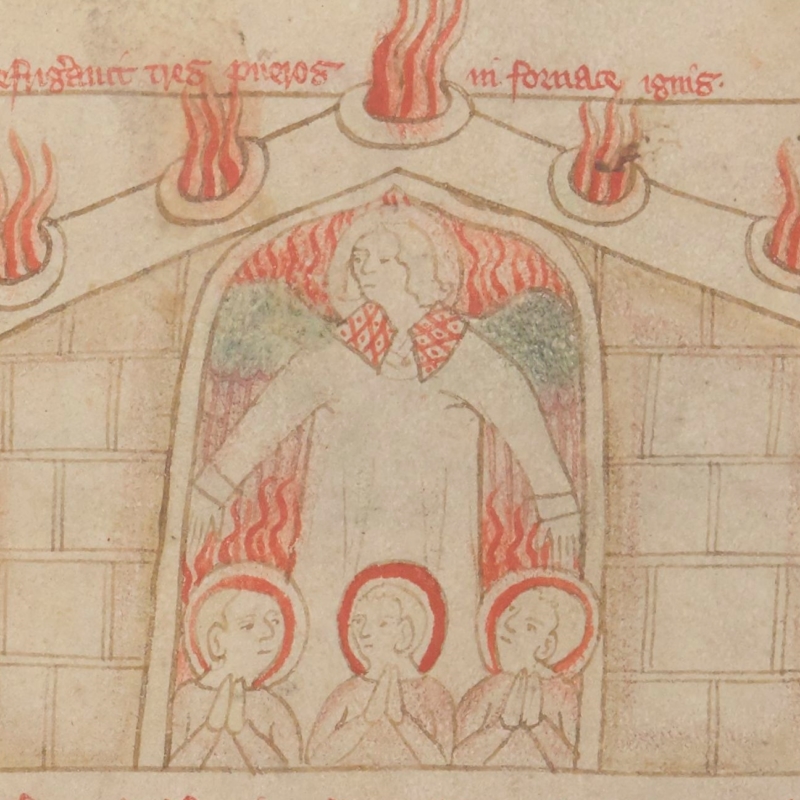 efrigerauit tres pueros in fornace ignis.